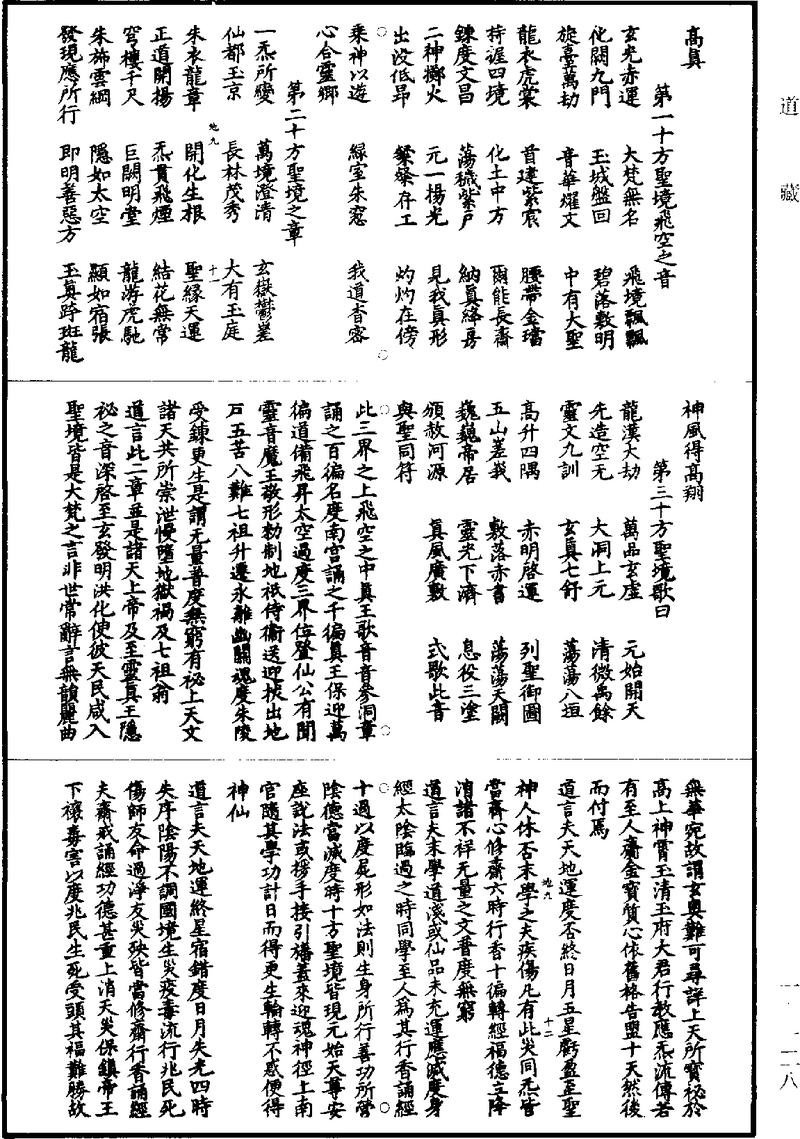 道藏
高真
第一十方聖境飛空之音
玄光赤運 大梵無名 飛境飄飄
化闢九門 玉城盤回 碧落敷明
旋臺萬劫 音華燿文 中有大聖
龍衣虎裳 首建紫宸 腰帶金璫
持握四境 化土中方 爾能長齋
鍊度文昌 蕩穢紫戶 納真絳房
二神擲火 元一揚光 見我真形
出没低昂 粲粲存工 灼灼在傍
乘神以遊 綠室朱窓 我道香宻
心合靈鄉
第二十方聖境之章
一炁所變 萬境澄清 玄嶽鬱差
仙都玉京 長林茂秀 大有玉庭
地九 十一
朱衣龍章 開化生根 聖緣天運
正道開揚 炁貫飛煙 結花無常
穹樓千尺 巨闕明堂 龍游虎馳
朱斾雲綱 隱如太空 顯如宿張
發現應所行 即明善惡方 玉真跨斑龍
神風得高翔
第三十方聖境歌曰
龍漢大劫 萬品玄虛 元始開天
先造空无 大洞上元 清微禹餘
靈文九訓 玄真七舒 蕩蕩八垣
高升四隅 赤明啓運 列聖御圖
五山差峩 敷落赤書 蕩蕩天闕
巍巍帝居 靈光下濟 息役三塗
頒赦河源 真風廣敷 式歌此音
與聖同符
此三界之上飛空之中真王歌音音參洞章
誦之百徧名度南宫誦之千徧真王保迎萬
徧道備飛昇太空過度三界位登仙公有聞
靈音魔王敬形勑制地祇侍衞送迎拔出地
戶五苦八難七祖升遷永離幽關魂度朱陵
受鍊更生是謂无量普度無窮有祕上天文
諸天共所崇泄慢墮地獄禍及七祖翁
道言此二章並是諸天上帝及至靈真王隱
祕之音深啓至玄發明洪化使彼天民咸入
聖境皆是大梵之言非世常辭言無韻麗曲
無華宛故謂玄奥難可尋詳上天所寳祕於
高上神霄玉清玉府大君行教應炁流傳若
有至人齎金寳質心依舊格告盟十天然後
而付焉
道言夫天地運度否終日月五星虧盈至聖
地九 十二
神人休否末學之夫疾傷凡有此災同炁皆
當齋心修齋六時行香十徧轉經福德立降
消諸不祥无量之文普度無窮
道言夫末學道淺或仙品未充運應滅度身
經太陰臨過之時同學至人爲其行香誦經
十過以度屍形如法則生身所行善功所營
陰德當滅度時十方聖境皆現元始天尊安
座説法或撈手接引旛蓋來迎魂神徑上南
宫隨其學功計日而得更生輪轉不惑便得
神仙
道言夫天地運終星宿錯度日月失光四時
失序陰陽不調國境生災疫毒流行兆民死
傷師友命過淨友災殃皆當修齋行香誦經
夫齋戒誦經功德甚重上消天災保鎮帝王
下禳毒害以度兆民生死受賴其福難勝故
一‧一二八